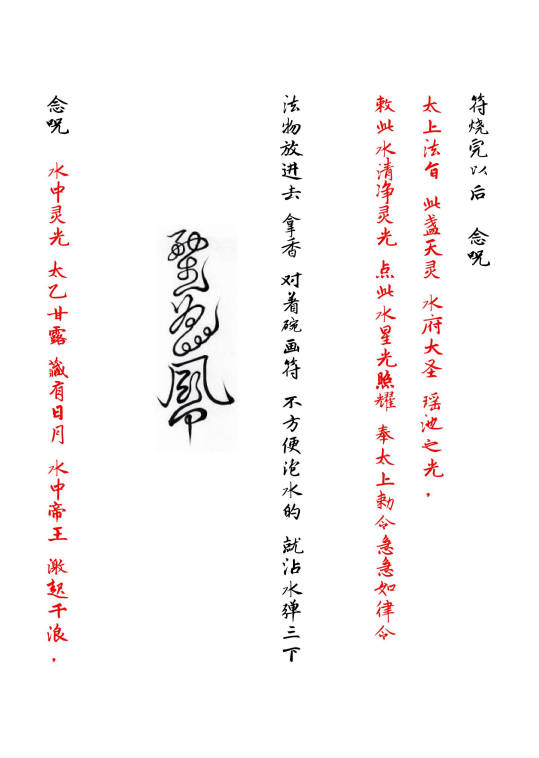 符烧完以后 念咒
太上法旨 此盏天灵 水府大圣 瑶池之光．
敕此水清净灵光 点此水星光照耀 奉太上勅令急急如律令
法物放进去 拿香 对着碗画符 不方便泡水的 就沾水弹三下
念咒 水中灵光 太乙甘露 藏有日月 水中帝王 激起千浪．